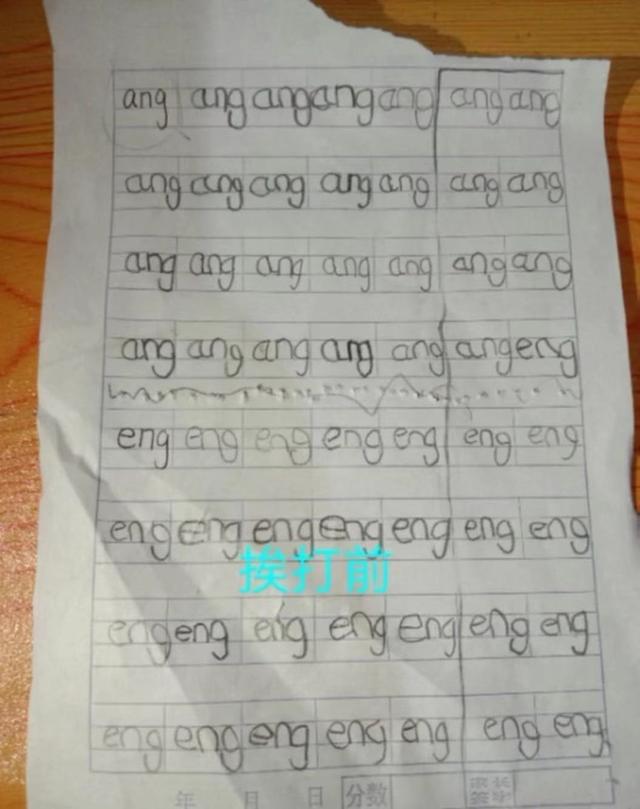 ang ang ang ang ang ang ang
ang ang ang ang ang ang ang
ang ang ang ang ang ang ang
ang ang ang ang ang ang eng
eng eng eng eng eng eng eng
eng eng eng eng eng eng eng
挨打前
eng eng eng eng eng eng eng
eng eng eng eng eng eng eng
年 月 日 分数 家长签字